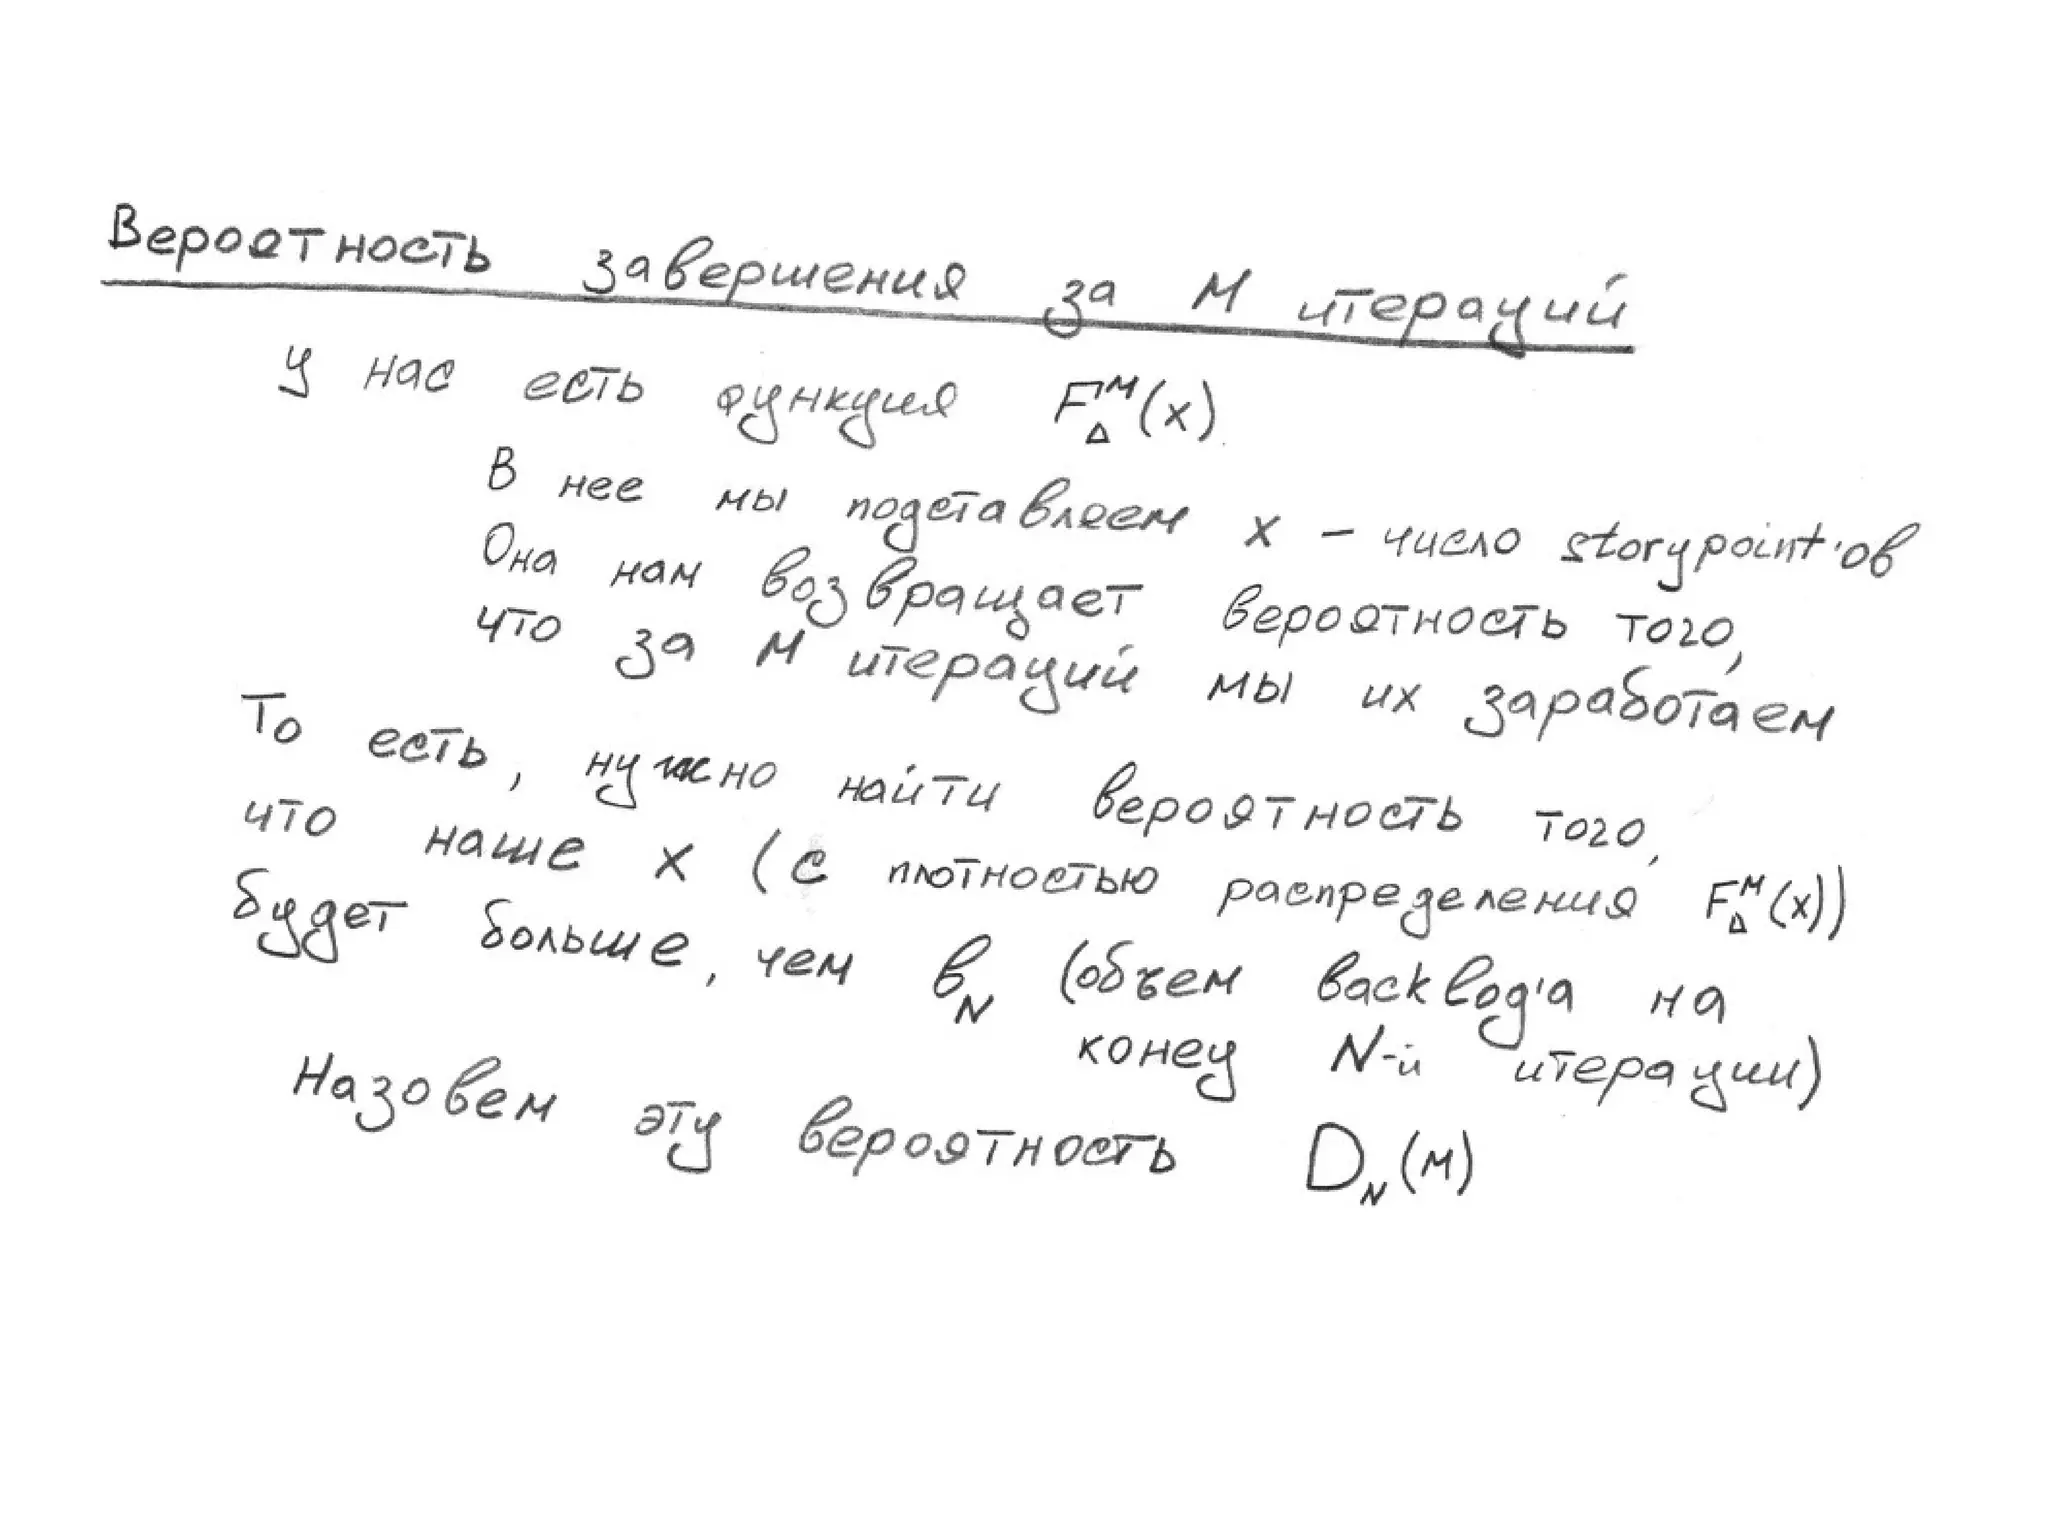 Вероятность завершения за M итераций
У нас есть функция F_Δ^M(x)
В нее мы подставляем x – число storypoint'ов
Она нам возвращает вероятность того,
что за M итераций мы их заработаем
То есть, нужно найти вероятность того,
что наше x (с плотностью распределения F_Δ^M(x))
будет больше, чем b_N (объем backlog'а на
конец N-й итерации)
Назовем эту вероятность D_N(M)